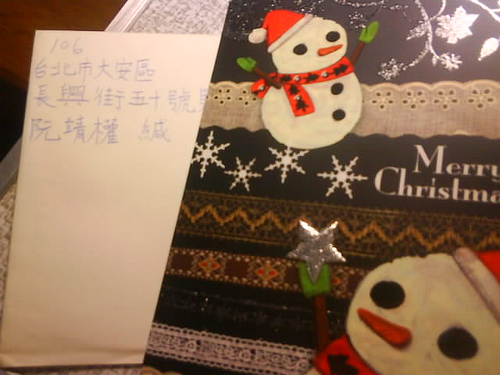 106
台北市大安區
長興街五十號
阮靖權 緘
Merry
Christma